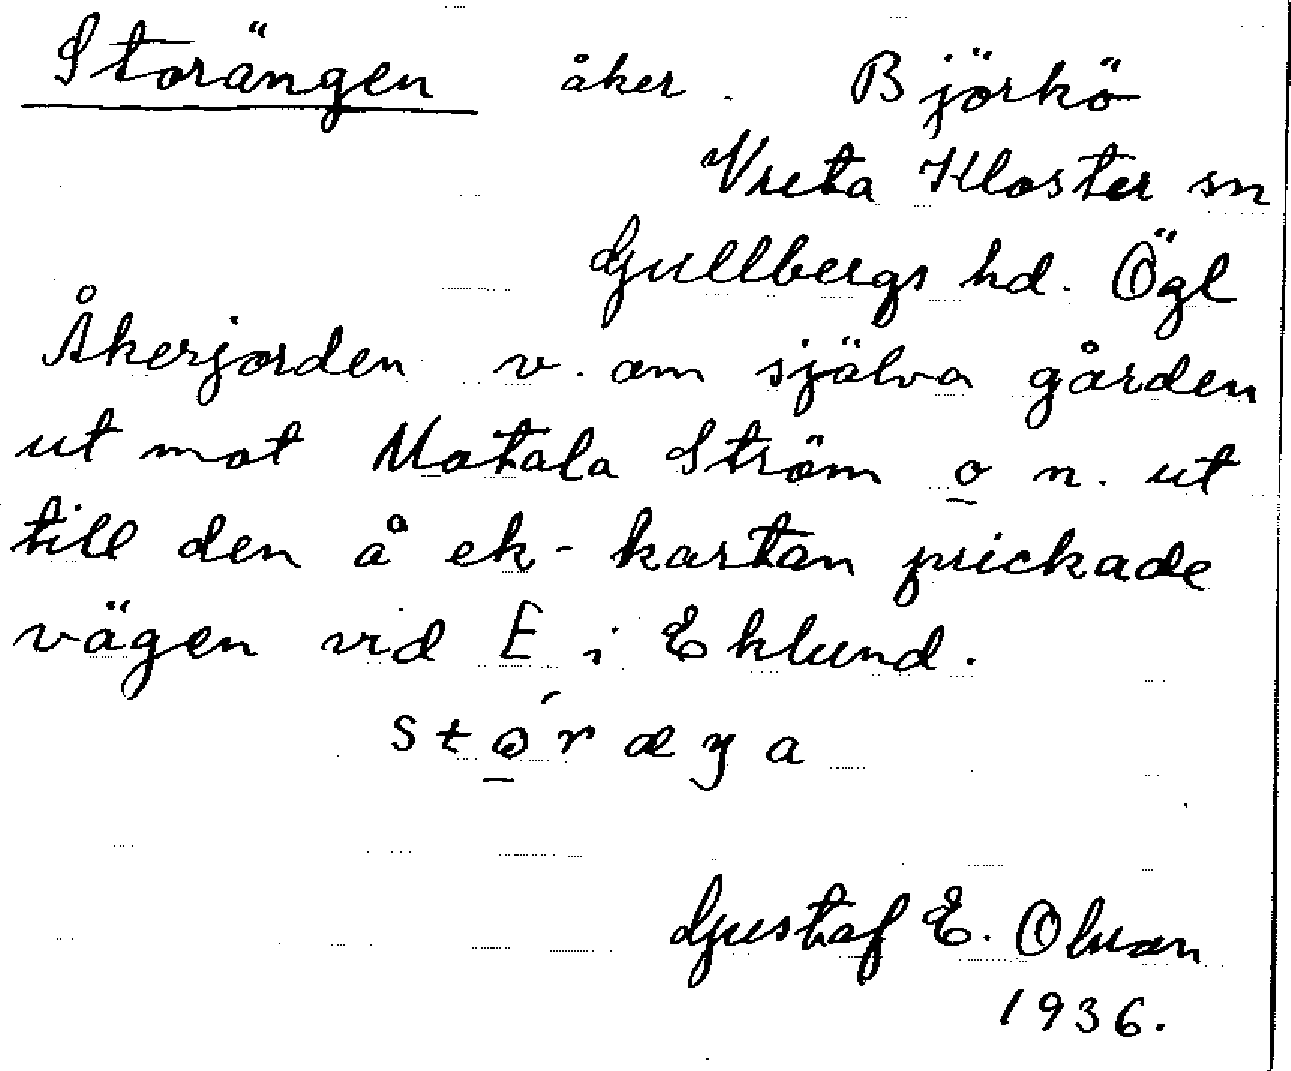 Storängen åker. Björkö
Vreta Kloster sn
Gullbergs hd. Ögl
Åkerjorden v. om själva gården
ut mot Motala Ström o n. ut
till den å ek-kartan prickade
vägen vid E i Eklund.
stǫ́ræŋa
Gustaf E. Olsson
1936.